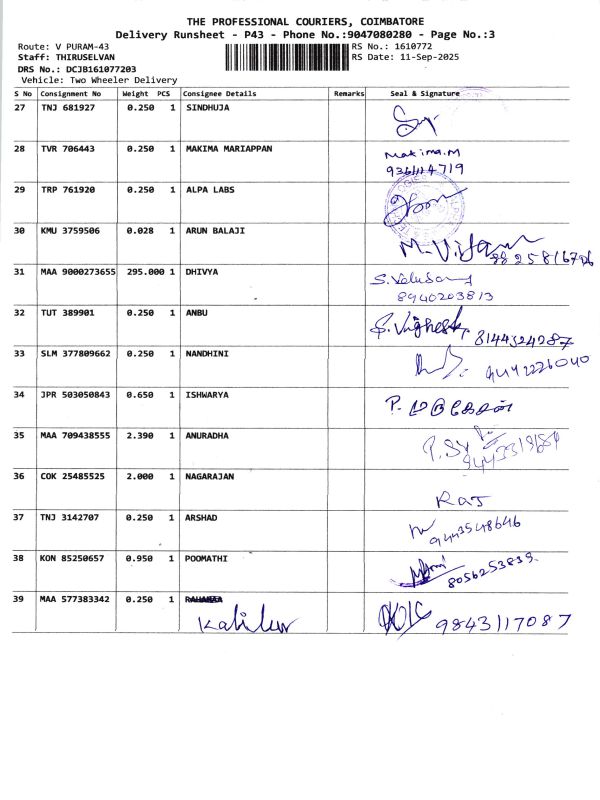 THE PROFESSIONAL COURIERS, COIMBATORE
Delivery Runsheet - P43 - Phone No.:9047080280 - Page No.:3
Route: V PURAM-43 RS No.: 1610772
Staff: THIRUSELVAN RS Date: 11-Sep-2025
DRS No.: DCJB161077203
Vehicle: Two Wheeler Delivery
S No Consignment No Weight PCS Consignee Details Remarks Seal & Signature
27 TNJ 681927 0.250 1 SINDHUJA
28 TVR 706443 0.250 1 MAKIMA MARIAPPAN Makima.M
29 TRP 761920 0.250 1 ALPA LABS
30 KMU 3759506 0.028 1 ARUN BALAJI
31 MAA 9000273655 295.000 1 DHIVYA
8940203813
32 TUT 389901 0.250 1 ANBU 8144324287
33 SLM 377809662 0.250 1 NANDHINI 9442226040
34 JPR 503050843 0.650 1 ISHWARYA P.
35 MAA 709438555 2.390 1 ANURADHA
36 COK 25485525 2.000 1 NAGARAJAN
RAJ
37 TNJ 3142707 0.250 1 ARSHAD 9443548646
38 KON 85250657 0.950 1 POOMATHI 8056253839
39 MAA 577383342 0.250 1
9843117087